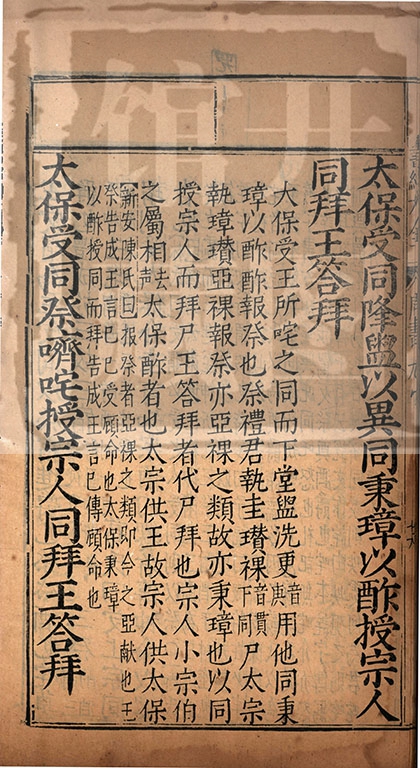 太保受同降盥以異同秉璋以酢授宗人
同拜王答拜
大保受王所咤之同而下堂盥洗更音庚用他同秉
璋以酢酢報祭也祭禮君執圭瓉祼音貫下同尸太宗
執璋瓉亞祼報祭亦亞祼之類故亦秉璋也以同
授宗人而拜尸王答拜者代尸拜也宗人小宗伯
之屬相去太保酢者也太宗供王故宗人供太保
新安陳氏曰報祭者亞祼之類即今之亞献也王
祭告成王言已已受顧命也太保秉璋
以酢授同而拜告成王言已傳顧命也
太保受同祭嚌咤授宗人同拜王答拜